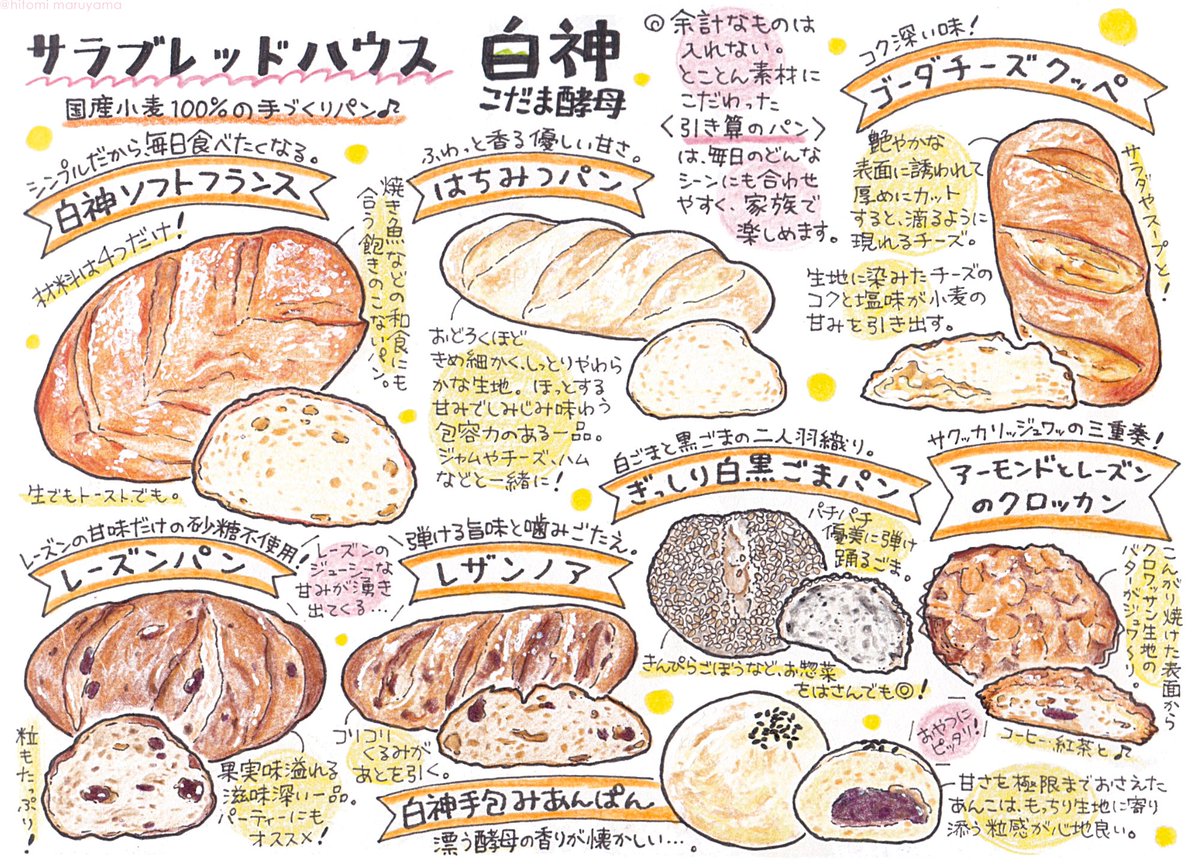 @hitomi maruyama
サラブレッドハウス
白神
こだま酵母
国産小麦100%の手づくりパン♪
◎余計なものは
入れない。
とことん素材に
こだわった
〈引き算のパン〉
は、毎日のどんな
シーンにも合わせ
やすく、家族で
楽しめます。
シンプルだから、毎日食べたくなる。
白神ソフトフランス
材料は4つだけ!
焼き魚などの和食にも
合う飽きのこないパン。
生でもトーストでも。
ふわっと香る優しい甘さ。
はちみつパン
おどろくほど
きめ細かく、しっとりやわら
かな生地。ほっとする
甘みでしみじみ味わう
包容力のある一品。
ジャムやチーズ、ハム
などと一緒に!
コク深い味!
ゴーダチーズクッペ
艶やかな
表面に誘われて
厚めにカット
すると、滴るように
現れるチーズ。
サラダやスープと!
生地に染みたチーズの
コクと塩味が小麦の
甘みを引き出す。
レーズンの甘味だけの砂糖不使用!
レーズンパン
レーズンの
ジューシーな
甘みが湧き
出てくる…
粒もたっぷり!
果実味溢れる
滋味深い一品。
パーティーにも
オススメ!
弾ける旨味と噛みごたえ。
レザンノア
コリコリ
くるみが
あとを引く。
白ごまと黒ごまの二人羽織り。
ぎっしり白黒ごまパン
パチパチ
優美に弾け
踊るごま。
きんぴらごぼうなど、お惣菜
をはさんでも◎!
サクッカリッジュワッの三重奏!
アーモンドとレーズン
のクロッカン
こんがり焼けた表面から
クロワッサン生地の
バターがジュワ〜リ。
コーヒー、紅茶と♪
白神手包みあんぱん
漂う酵母の香りが懐かしい…。
おやつに
ピッタリ!
甘さを極限までおさえた
あんこは、もっちり生地に寄り
添う粒感が心地良い。